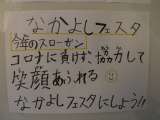 なかよしフェスタ
今年のスローガン
コロナに負けず、協力して
笑顔あふれる
なかよしフェスタにしよう!!